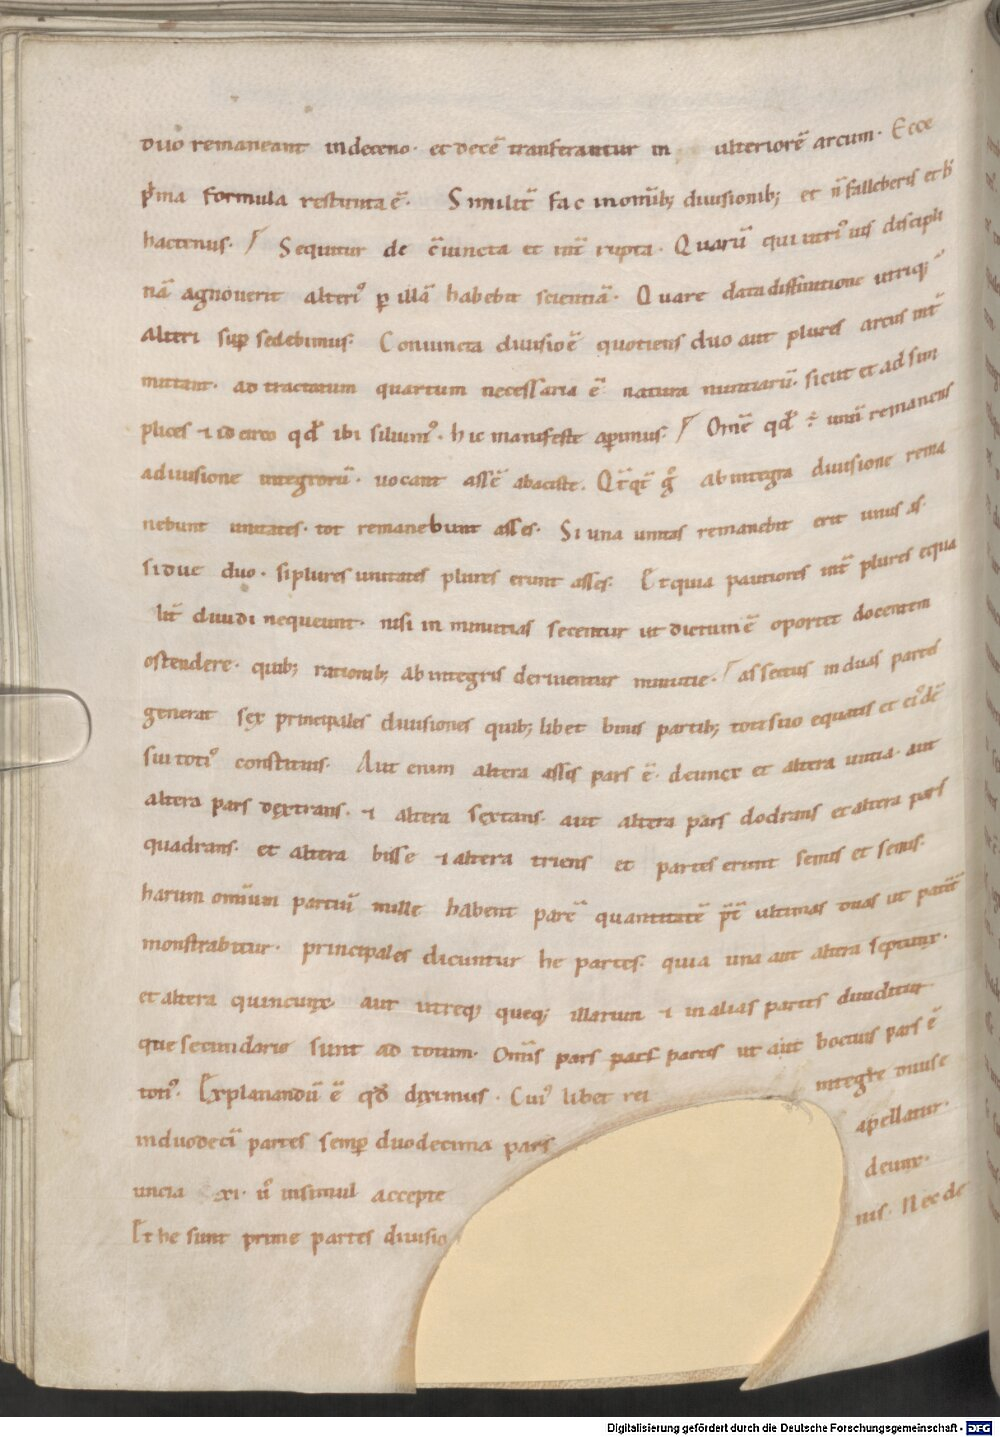 duo remaneant in deceno· et decē transferantur in ulteriorē arcum· Ecce
p̄ma formula restituta ē· Similit̄ fac in omīb; diuisionib; et ñ falleberis et b̄
hactenus· Sequitur de c̄iuncta et int̄ rupta· Quarū qui utri᷒ uis discipli
nā agnouerit alteri᷒ ꝑ illā habebit scientiā· Quare data distinctione utriq;
alteri suꝑ sedebimus· Coniuncta diuisio ē quotiens duo aut plures arcus int̄
mittant· ad tractatum quartum necessaria ē natura minutiarū· sicut et ad sim
plices ⁊ idcirco qd̄ ibi siluim᷒· hic manifeste aꝑimus· Omē qd̄ ÷ unū remanens
a diuisione integrorū· uocant assē abaciste. Q̄t̄q̄t̄ g̊ ab integra diuisione rema
nebunt unitates· tot remanebunt asses· Si una unitas remanebit erit unus as·
si due duo· si plures unitates plures erunt asses· Et quia pautiores int̄ plures equa
lit̄ diuidi nequeunt· nisi in minutias secentur ut dictum ē oportet docentem
ostendere· quib; rationib; ab integris deriuentur minutie· as sectus in duas partes
generat sex principales diuisiones quib; libet binis partib; toti suo equatis et ei᷒dē
sui toti᷒ constitutis· Aut enim altera assis pars ē· deunx et altera untia· aut
altera pars dextrans· ⁊ altera sextans· aut altera pars dodrans et altera pars
quadrans· et altera bisse ⁊ altera triens et partes erunt semis et semis·
harum omium partiū nulle habent parē quantitatē p̄t̄ ultimas duas ut patēt̄
monstrabitur· principales dicuntur he partes· quia una aut altera septunx·
et altera quincunx aut utreq; queq; illarum ⁊ in alias partes diuiditur
que secundario sunt ad totum· Omīs pars pars partis ut aut toti᷒ pars ē
toti᷒· Explanandū ē qd̄ diximus· Cui᷒ libet rei integre diuise
in duodecī partes semꝑ duodecima pars apellatur·
uncia xi· ū insimul accepte deunx·
Et he sunt prime partes diuisio nis· Nec de
Digitalisierung gefördert durch die Deutsche Forschungsgemeinschaft - DFG